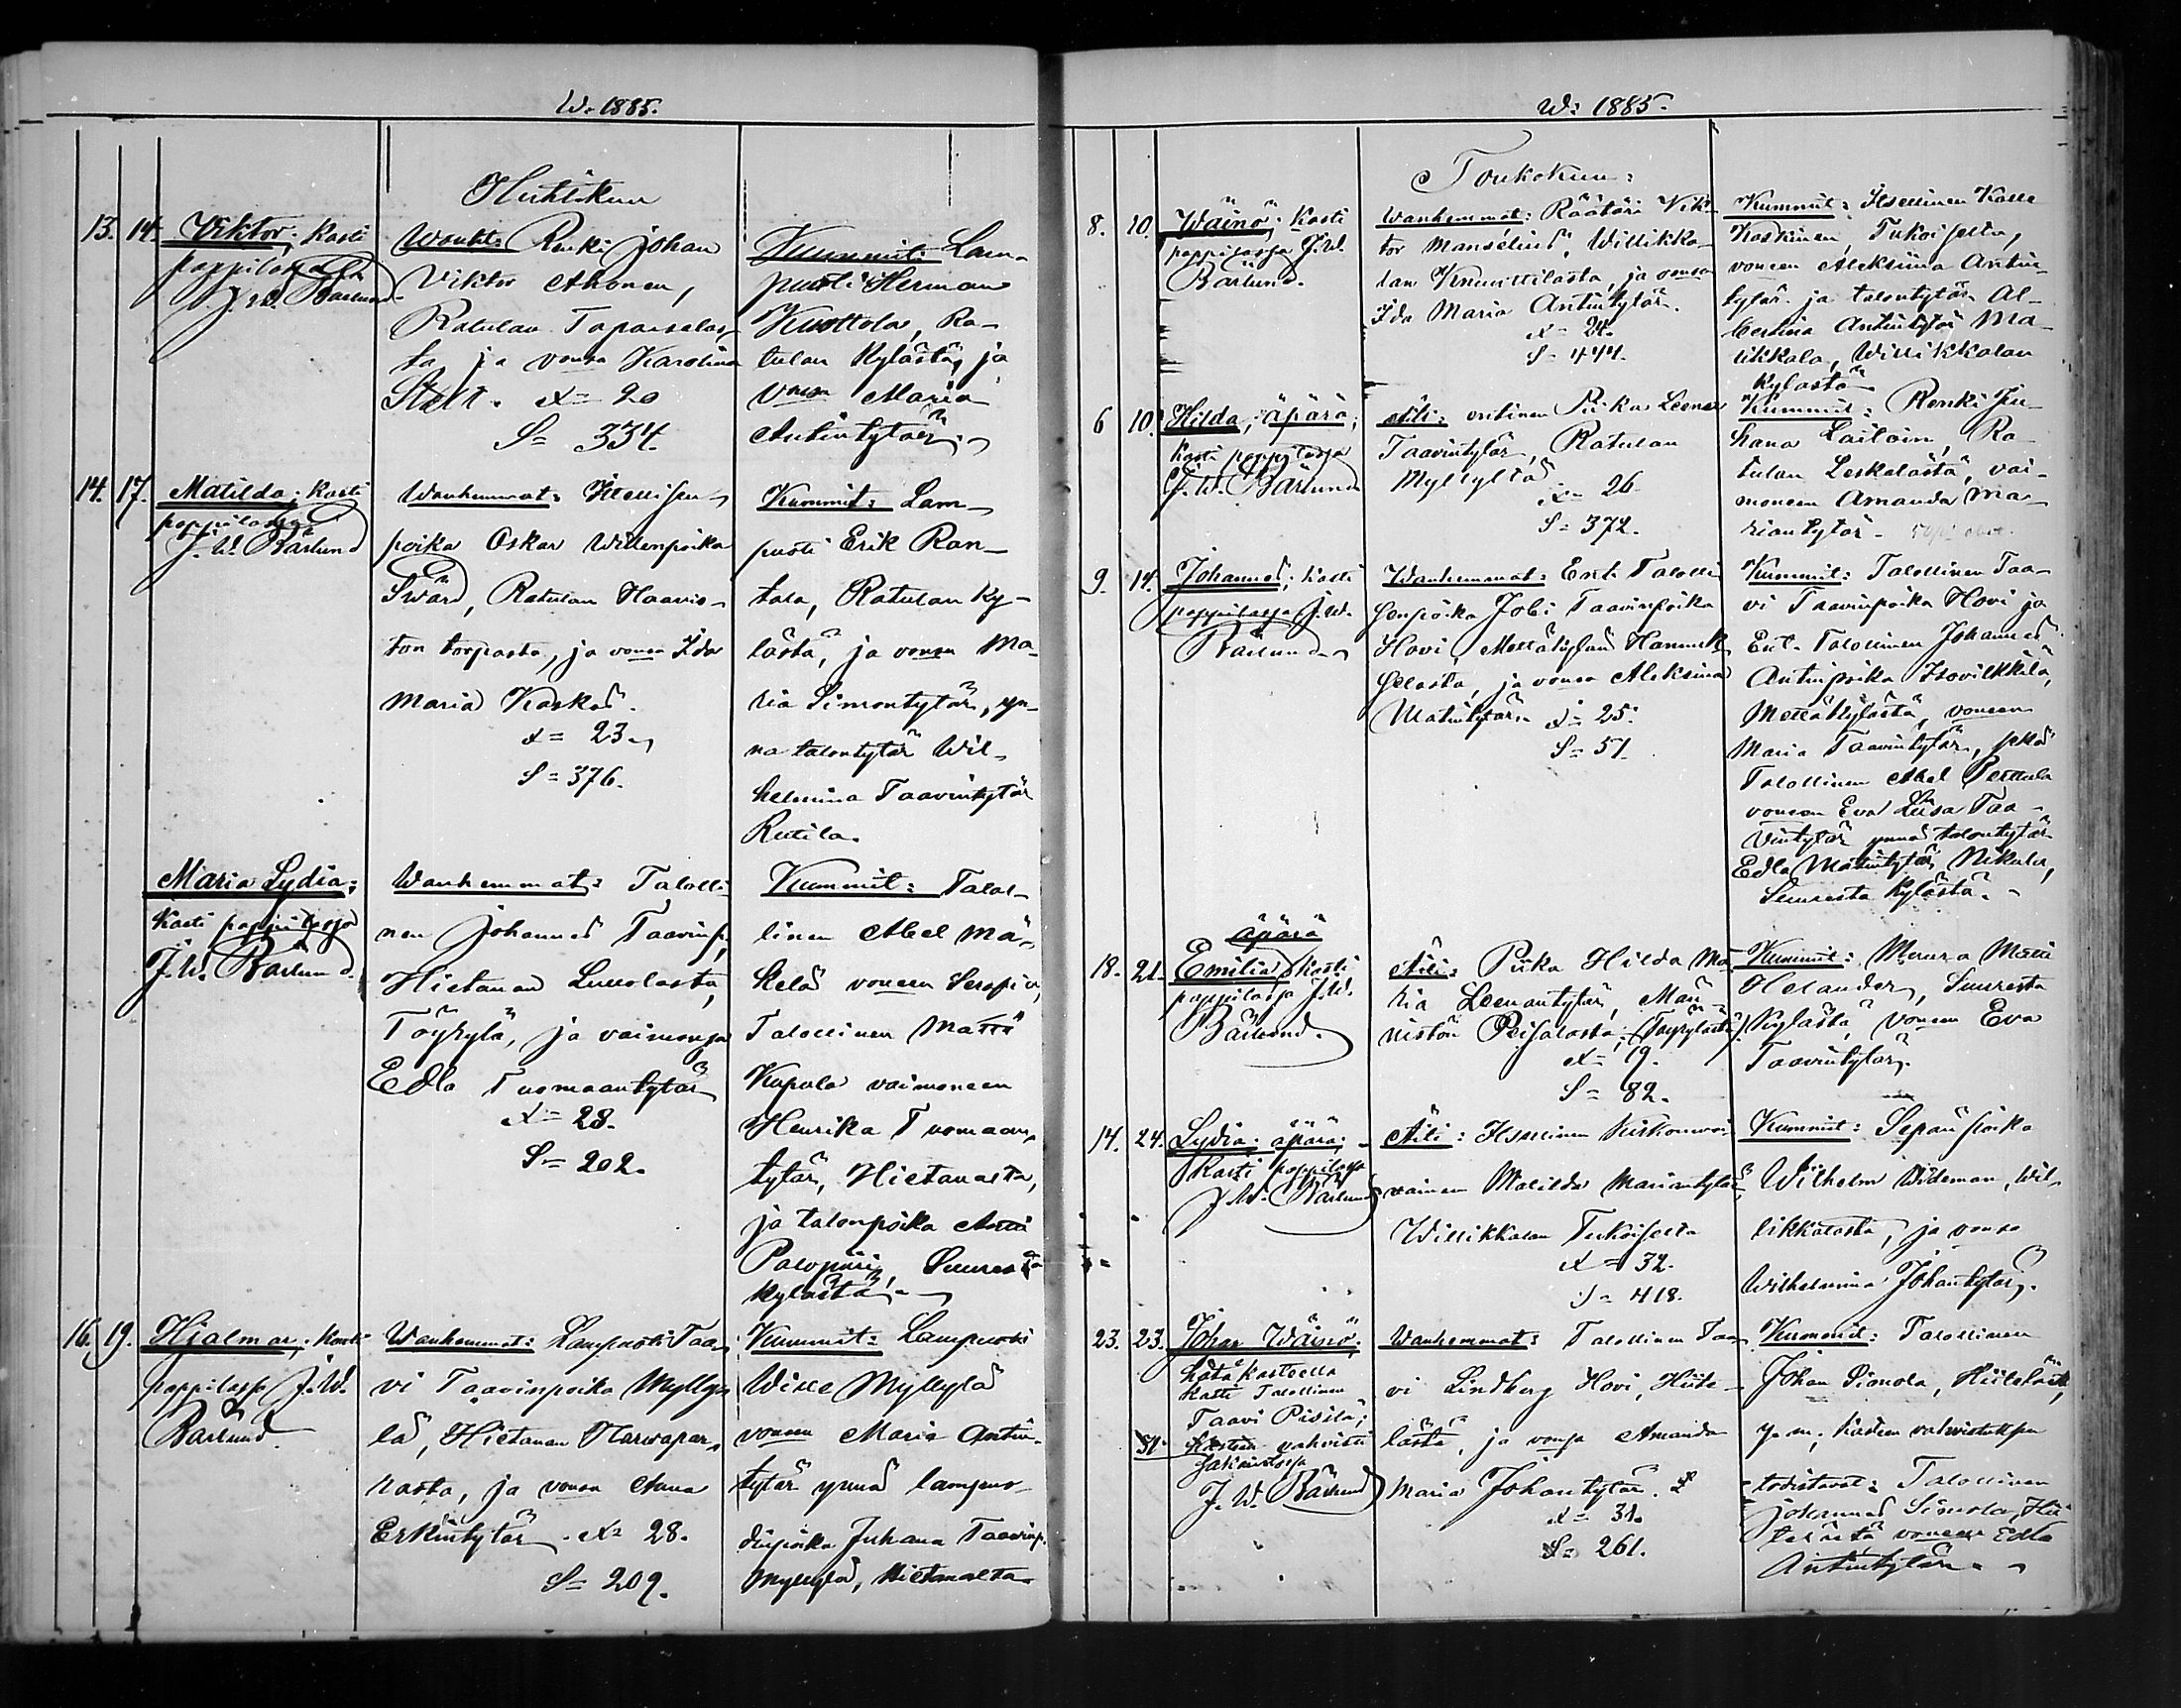 W. 1885.
Huhtikuu
13. 14. Viktor; Kasti
pappilassa
J. W. Bärlund.
Wanht: Renki Johan
Viktor Ahonen,
Ratulan Taparsalas-
ta, ja vonsa Karolina
Stålt. X = 20
S = 334.
Kummit: Lam-
puoti Herman
Kuottola, Ra-
tulan Kylästä, ja
vonsa Maria
Antintytär.
14. 17. Matilda; Kasti
pappilassa
J. W. Bärlund
Wanhemmat: Itsellisen
poika Oskar Willenpoika
Svärd, Ratulan Haavis-
ton torpasta, ja vonsa Ida
Maria Kaskas.
X = 23.
S = 376.
Kummit: Lam-
puoti Erik Ran-
tala, Ratulan Ky-
lästä, ja vonsa Ma-
ria Simontytär, yn-
nä talontytär Wil-
helmina Taavintytär
Rutila.
Maria Lydia;
Kasti pappilassa
J. W. Bärlund.
Wanhemmat: Talolli-
nen Johannes Taavinp.
Hietanan Luuolasta,
Töyrylä, ja vaimonsa
Edla Tuomaantytär
X = 28.
S = 202.
Kummit: Talol-
linen Abel Mä-
kelä voneen Serafia,
Talollinen Matti
Kupala vaimoneen
Henrika Tuomaan-
tytär, Hietanasta,
ja talonpoika Antti
Palopuri, Suuresta
kylästä.
16. 19. Hjalmar; Kasti
pappilassa J. W.
Bärlund.
Wanhemmat: Lampuoti Taa-
vi Taavinpoika Mylly-
lä, Hietanan Harwapar-
nasta, ja vonsa Anna
Erkintytär. X = 28.
S = 209.
Kummit: Lampuoti
Wille Myllylä
voneen Maria Antin-
tytär ynnä lampuo-
dinpoika Juhana Taavinp.
Myllylä, Hietanalta
W: 1885.
Toukokuu:
8. 10. Wäinö; Kasti
pappilassa J. W.
Bärlund.
Wanhemmat: Räätäri Vik-
tor Mansélius, Willikka-
lan Knuuttilasta, ja vonsa
Ida Maria Antintytär.
X = 24.
S = 444.
Kummit: Itsellinen Kalle
Koskinen, Tukoiselta,
voneen Aleksiina Antin-
tytär ja talontytär Al-
bertina Antintytär Ma-
tikkala, Willikkalan
Kylästä
6 10. Hilda; äpärä;
Kasti pappilassa
J. W. Bärlund
Äiti: entinen Piika Leena
Taavintytär, Ratulan
Myllyltä
X = 26
S = 372.
Kummit: Renki Ju-
hana Lailoin, Ra-
tulan Leskalästä, vai-
moneen Amanda Ma-
riantytär.
9. 14. Johannes; Kasti
pappilassa J. W.
Bärlund.
Wanhemmat: Ent. Talolli-
senpoika Jobi Taavinpoika
Hovi, Metsäkylän Hannuk-
selasta, ja vonsa Aleksina
Matintytär. X = 25.
S = 51.
Kummit: Talollinen Taa-
vi Taavinpoika Hovi ja
Ent. Talollinen Johannes
Antinpoika Isovilkkilä,
Metsäkylästä, voneen
Maria Taavintytär, sekä
Talollinen Abel Perttula
voneen Eva Liisa Taa-
vintytär ynnä talontytär
Edla Matintytär Nikula,
Suuresta Kylästä.
äpärä
18. 21. Emilia; Kasti
pappilassa J. W.
Bärlund.
Äiti: Piika Hilda Ma-
ria Leenantytär, Män-
nistön Peisalasta, (Töyrylästä).
X = 19.
S = 82.
Kummit: Muura Matti
Helander, Suuresta
Kylästä, voneen Eva
Taavintytär.
14. 24. Lydia; äpärä;
Kasti pappilassa
J. W. Bärlund
Äiti: Itsellinen Kirkonwai-
vainen Matilda Mariantytär
Willikkalan Tukoiselta
X = 32.
S = 418.
Kummit: Sepänpoika
Wilhelm Wideman, Wil-
likkalasta, ja vonsa
Wilhelmina Johantytär.
23. 23. Johan Wäinö;
Hätäkasteella
kasti Talollinen
Taavi Pisilä;
31. Kasteen vahvisti
Sakaristossa
J. W. Bärlund
Wanhemmat: Talollinen Taa-
vi Lindberg Hovi, Hiite-
lästä, ja vonsa Amanda
Maria Johantytär.
X = 31.
S = 261.
Kummit: Talollinen
Johan Simola, Hiitelästä,
y. m; kasteen vahvistuksen
todistavat: Talollinen
Johannes Simola, Hii-
telästä, voneen Edla
Antintytär.